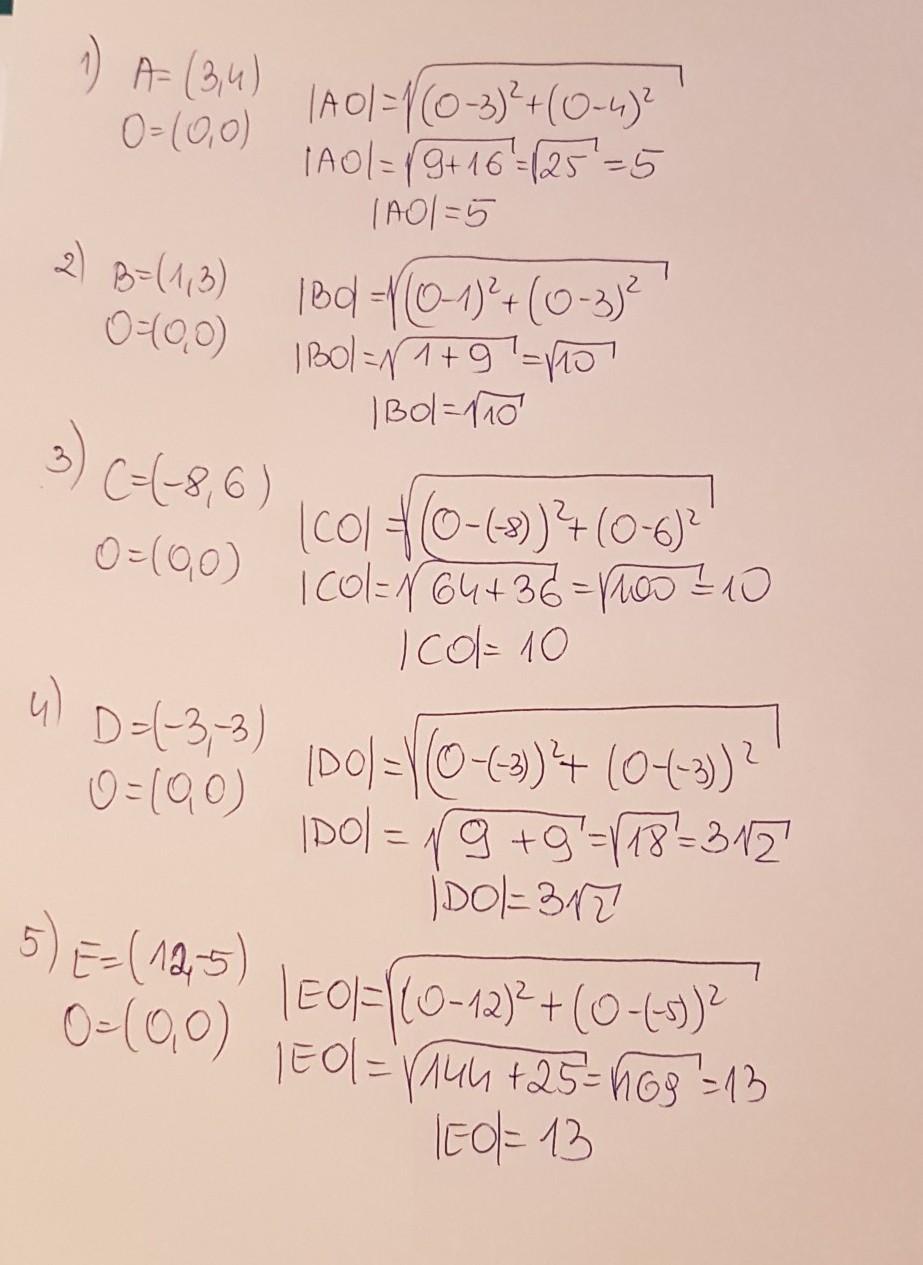 1) A=(3,4) |AO|=√(0-3)²+(0-4)²
O=(0,0)
|AO|=√9+16=√25=5
|AO|=5
2) B=(1,3) |BO|=√(0-1)²+(0-3)²
O=(0,0)
|BO|=√1+9=√10
|BO|=√10
3) C=(-8,6) |CO|=√(0-(-8))²+(0-6)²
O=(0,0)
|CO|=√64+36=√100=10
|CO|=10
4) D=(-3,-3) |DO|=√(0-(-3))²+(0-(-3))²
O=(0,0)
|DO|=√9+9=√18=3√2
|DO|=3√2
5) E=(12,-5) |EO|=√(0-12)²+(0-(-5))²
O=(0,0)
|EO|=√144+25=√169=13
|EO|=13